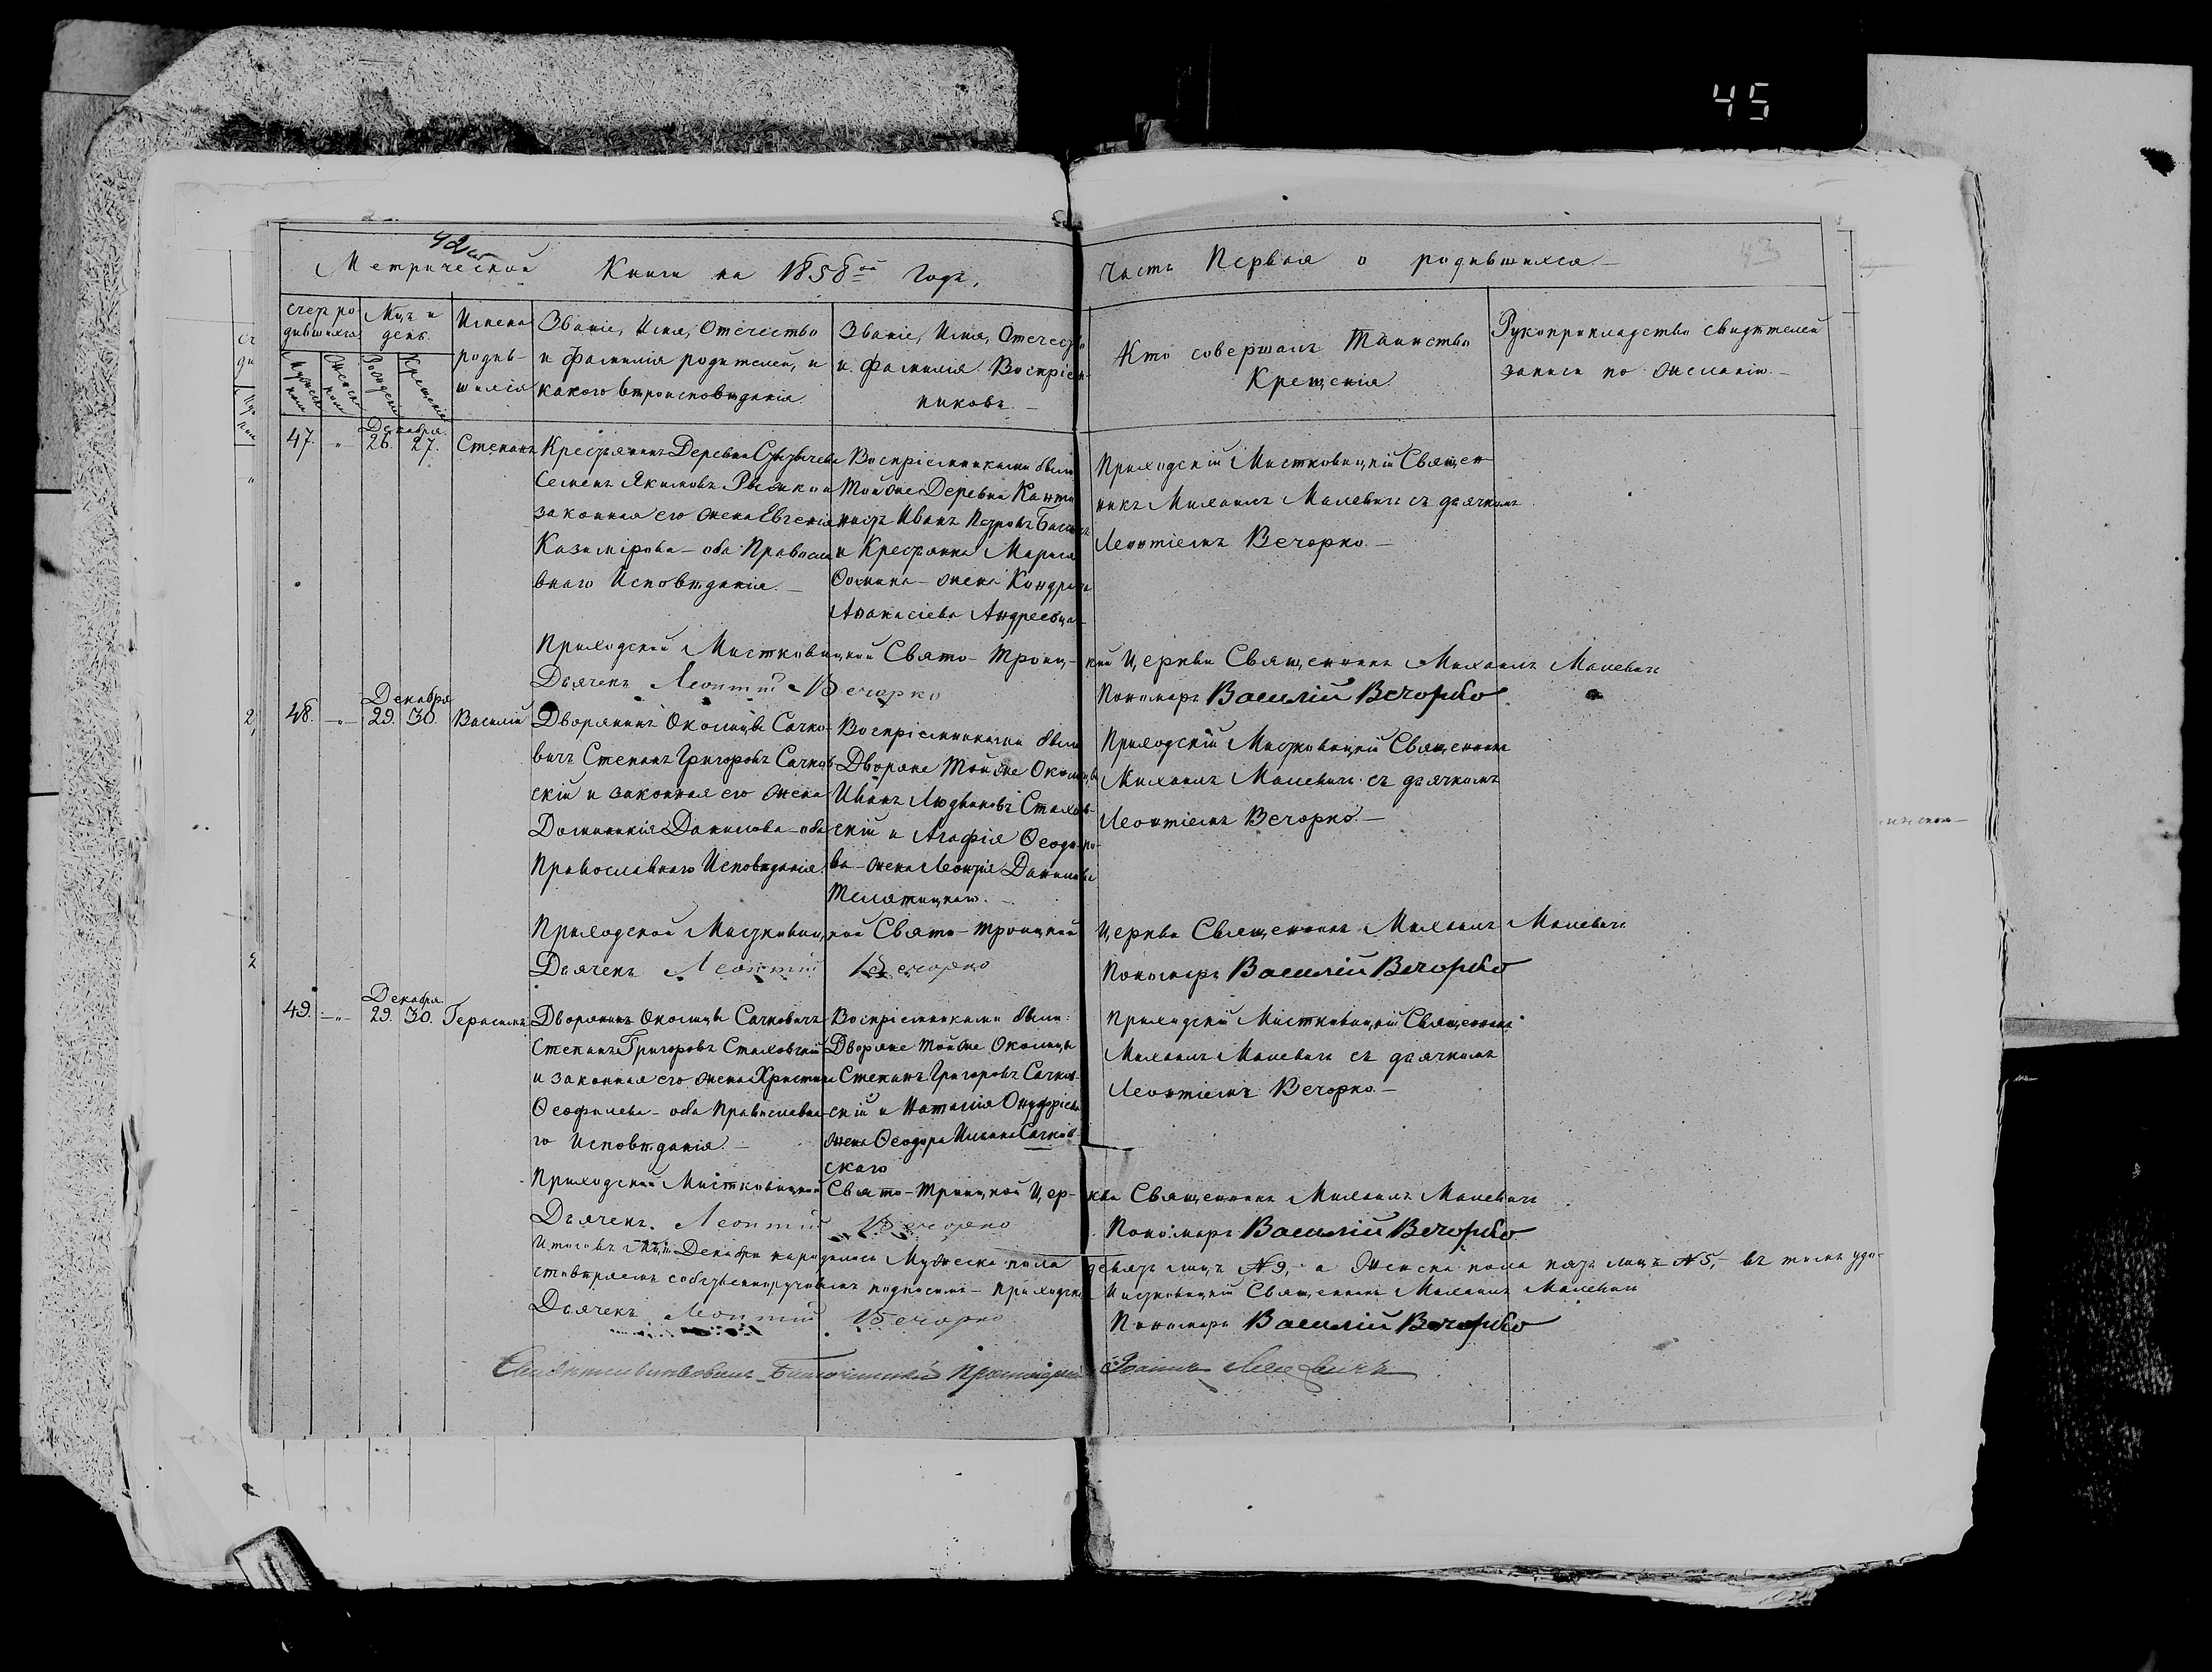 45
42
43
Метрической Книги на 1858ой Годъ,
Часть Первая о родившихся
Счет ро-
дившихся
Мужеска пола
Женска пола
Мцъ и
день.
Рожденія
Крещенія
Имена
родив-
шихся
Званіе, Имя, Отечество
и Фамилія родителей, и
какого вѣроисповѣданія
Званіе, Имя, Отечество
и Фамилія Воспріем-
никовъ
Кто совершалъ Таинство
Крещенія
Рукоприкладство свидѣтелей
записи по желанію.
Декабря
47. " 26. 27. Степанъ
Крестьянинъ Деревни
Семенъ Якимовъ
законная его жена Евгенія
Казимірова - оба Правосла
внаго Исповѣданія.
Воспріемниками были
Той же Деревни Канто
нистъ Иванъ Петровъ
и Крестьянка Марися
Фомина - жена Кондрата
Афанасіева
Приходскій Мистковицкій Священ
никъ Михаилъ Малевичъ съ дьячкомъ
Леонтіемъ Вечорко.
Приходской Мистковицкой Свято-Троиц-кой Церкви Священникъ Михаилъ Малевичъ
Дьячекъ Леонтій Вечорко Пономарь Василій Вечорко
Декабря
48. " 29. 30. Василій
Дворянинъ Околицы Сачко-
вичъ Степанъ Григоровъ Сачков
скій и законная его жена
Доминикія Данилова - оба
Православнаго Исповѣданія.
Воспріемниками были
Дворяне Той же Околицы
Иванъ Людвиковъ Стахов-
скій и Агафія Ѳеодо-ро-
ва - жена Леонтія Данилова
Телятицкаго.
Приходскій Мистковицкій Священникъ
Михаилъ Малевичъ съ дьячкомъ
Леонтіемъ Вечорко
Приходской Мистковицкой Свято-Троицкой Церкви Священникъ Михаилъ Малевичъ
Дьячекъ Леонтій Вечорко Пономарь Василій Вечорко
Декабря
49. " 29. 30. Герасимъ
Дворянинъ Околицы Сачковичъ
Степанъ Григоровъ Стаховскій
и законная его жена Христина
Ѳеофилева - оба Православна
го Исповѣданія
Воспріемниками были:
Дворяне Той же Околицы
Степанъ Григоровъ Сачков-
скій и Наталія Онуфріева
жена Ѳеодора Сачков
скаго
Приходскій Мистковицкій Священникъ
Михаилъ Малевичъ съ дьячкомъ
Леонтіемъ Вечорко.
Приходской Мистковицкой Свято-Троицкой Цер-кви Священникъ Михаилъ Малевичъ
Дьячекъ. Леонтій Вечорко Пономарь Василій Вечорко
Декабря народилось Мужеска пола девять лицъ №9, - а Женска пола пять лицъ №5, - въ томъ удо-
стовѣряемъ собственноручнымъ подписомъ - Приходскій Мистковицкій Священникъ Михаилъ Малевичъ
Дьячекъ Леонтій Вечорко Пономарь Василій Вечорко
Свидѣтельствовалъ Благочинный Протоіерей Іоаннъ